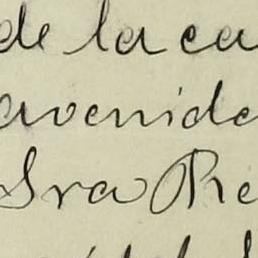 de la ca
avenide
Sra Re